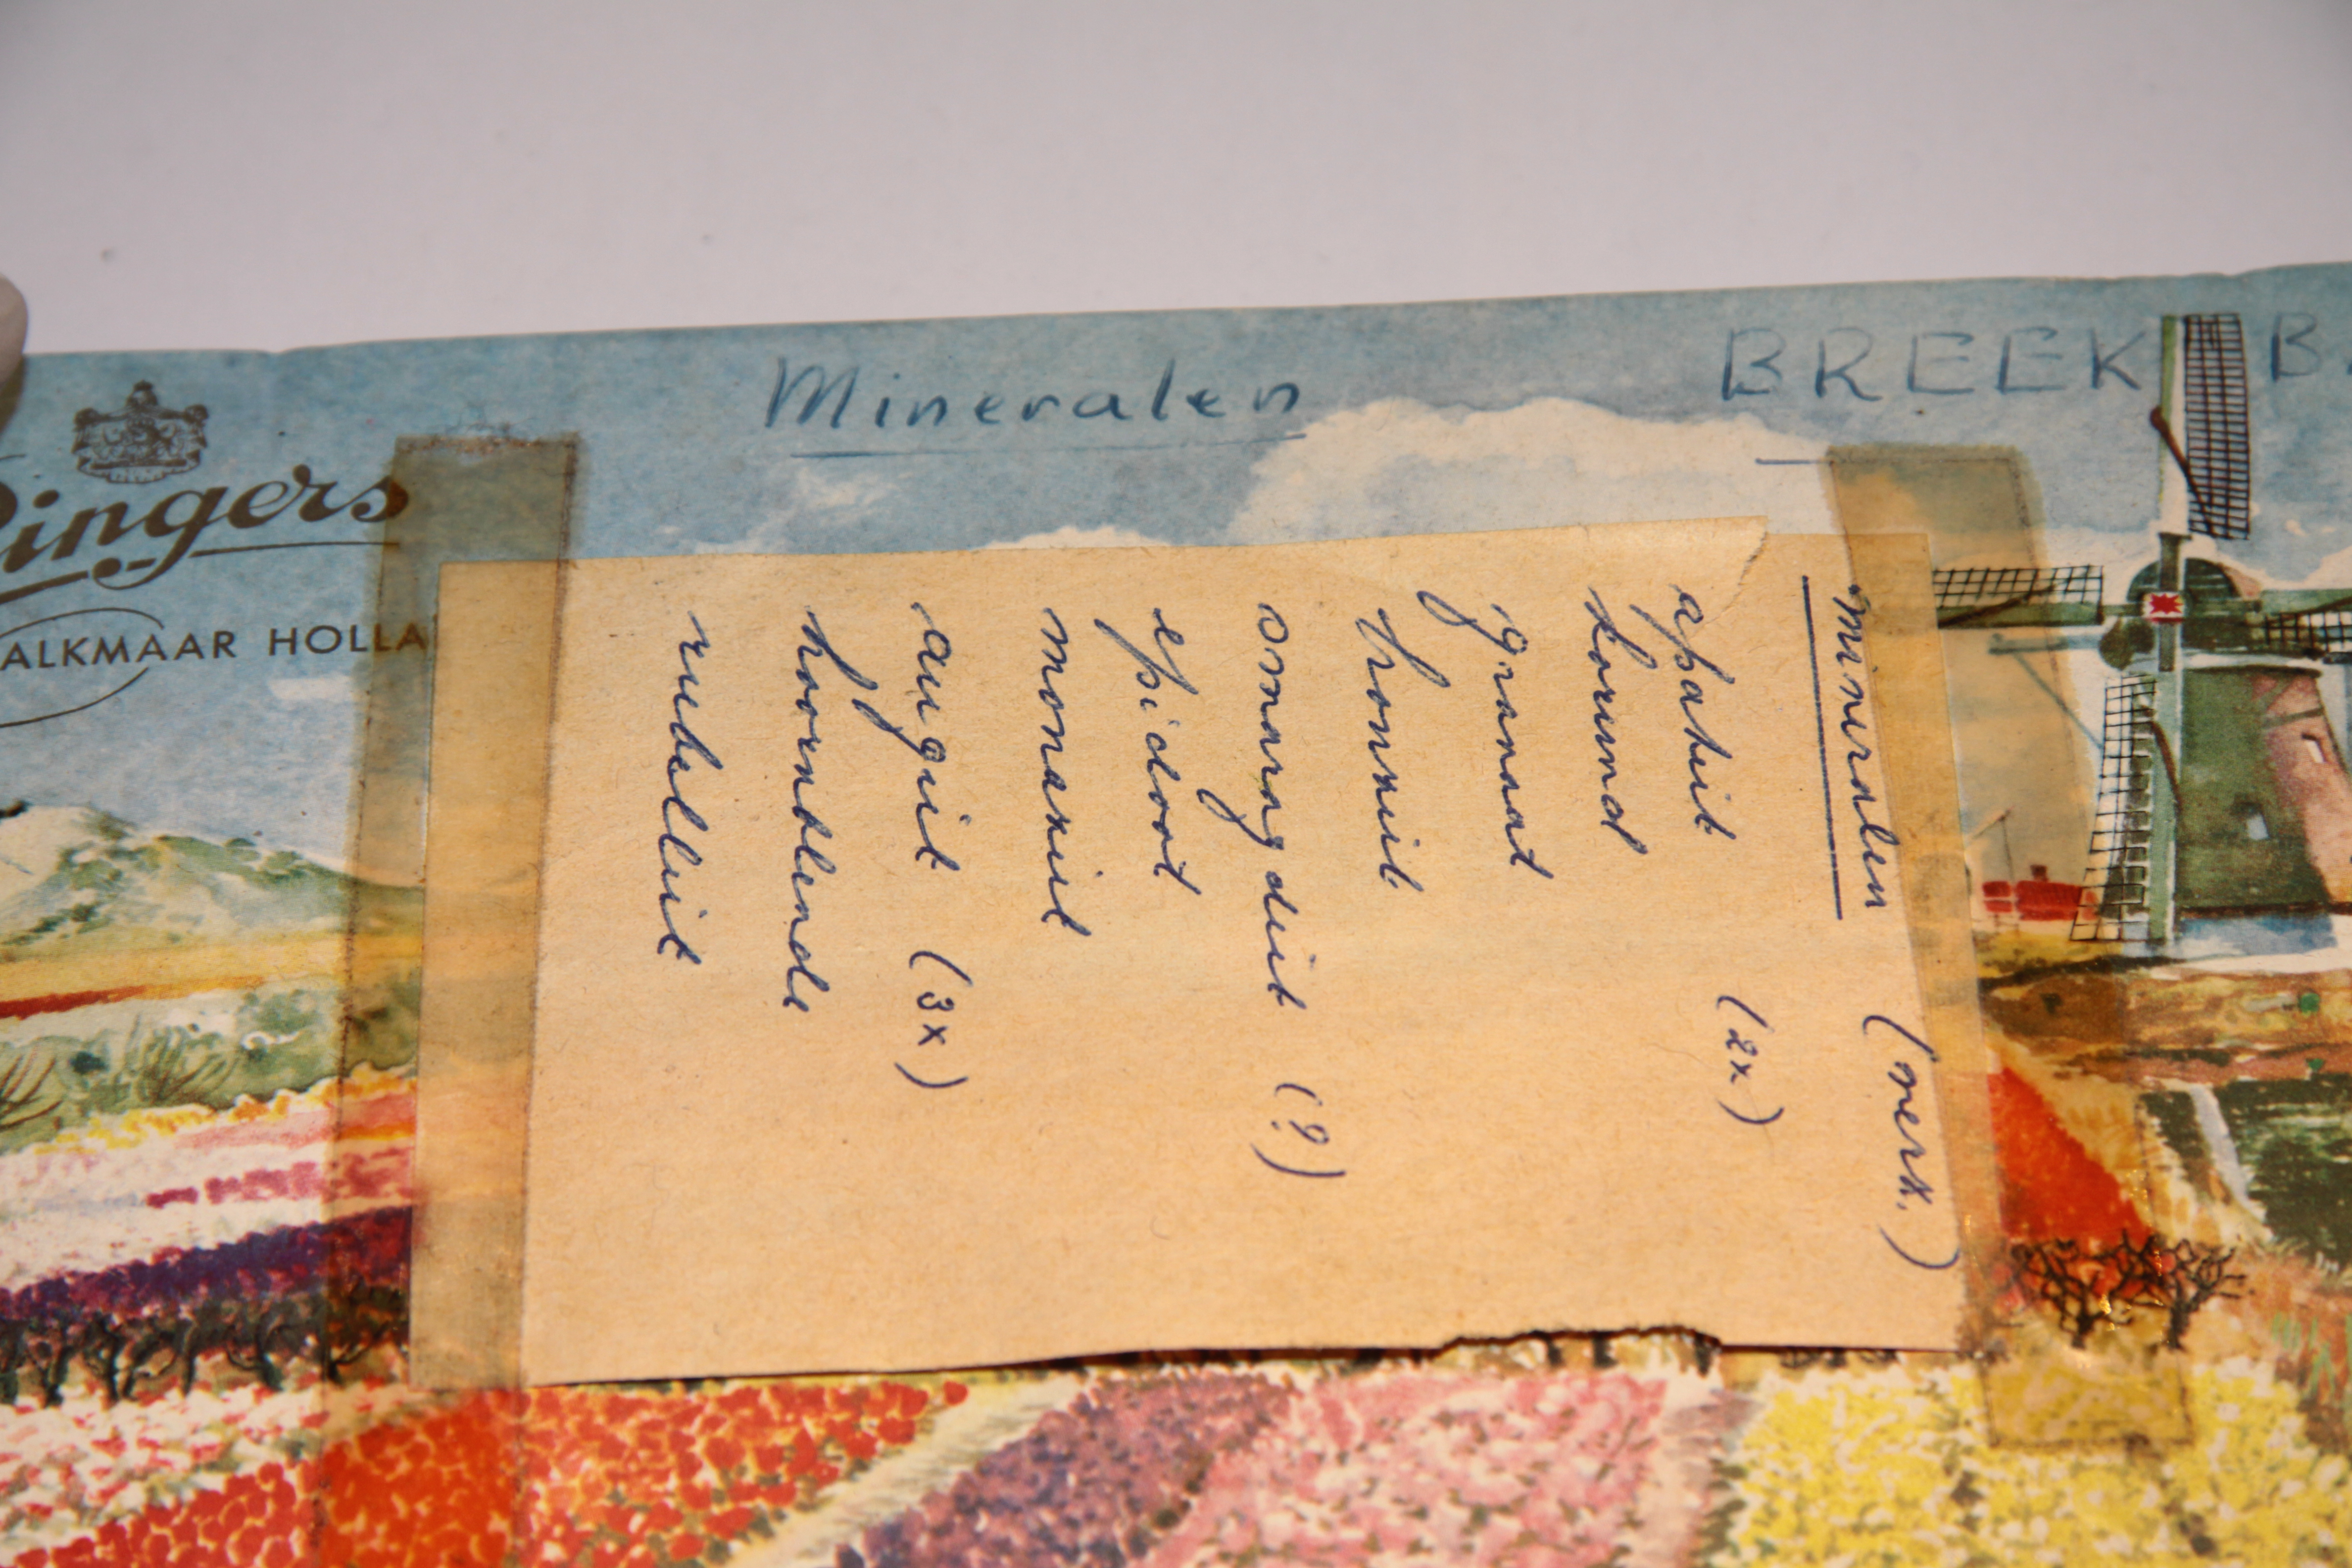 Mineralen
BREEK B
Ringers
ALKMAAR HOLLA
mineralen (merk.)
apatiet (2x)
korund
granaat
smaragdiet (?)
epidoot
monaziet
augiet (3x)
hoornblende
rubelliet